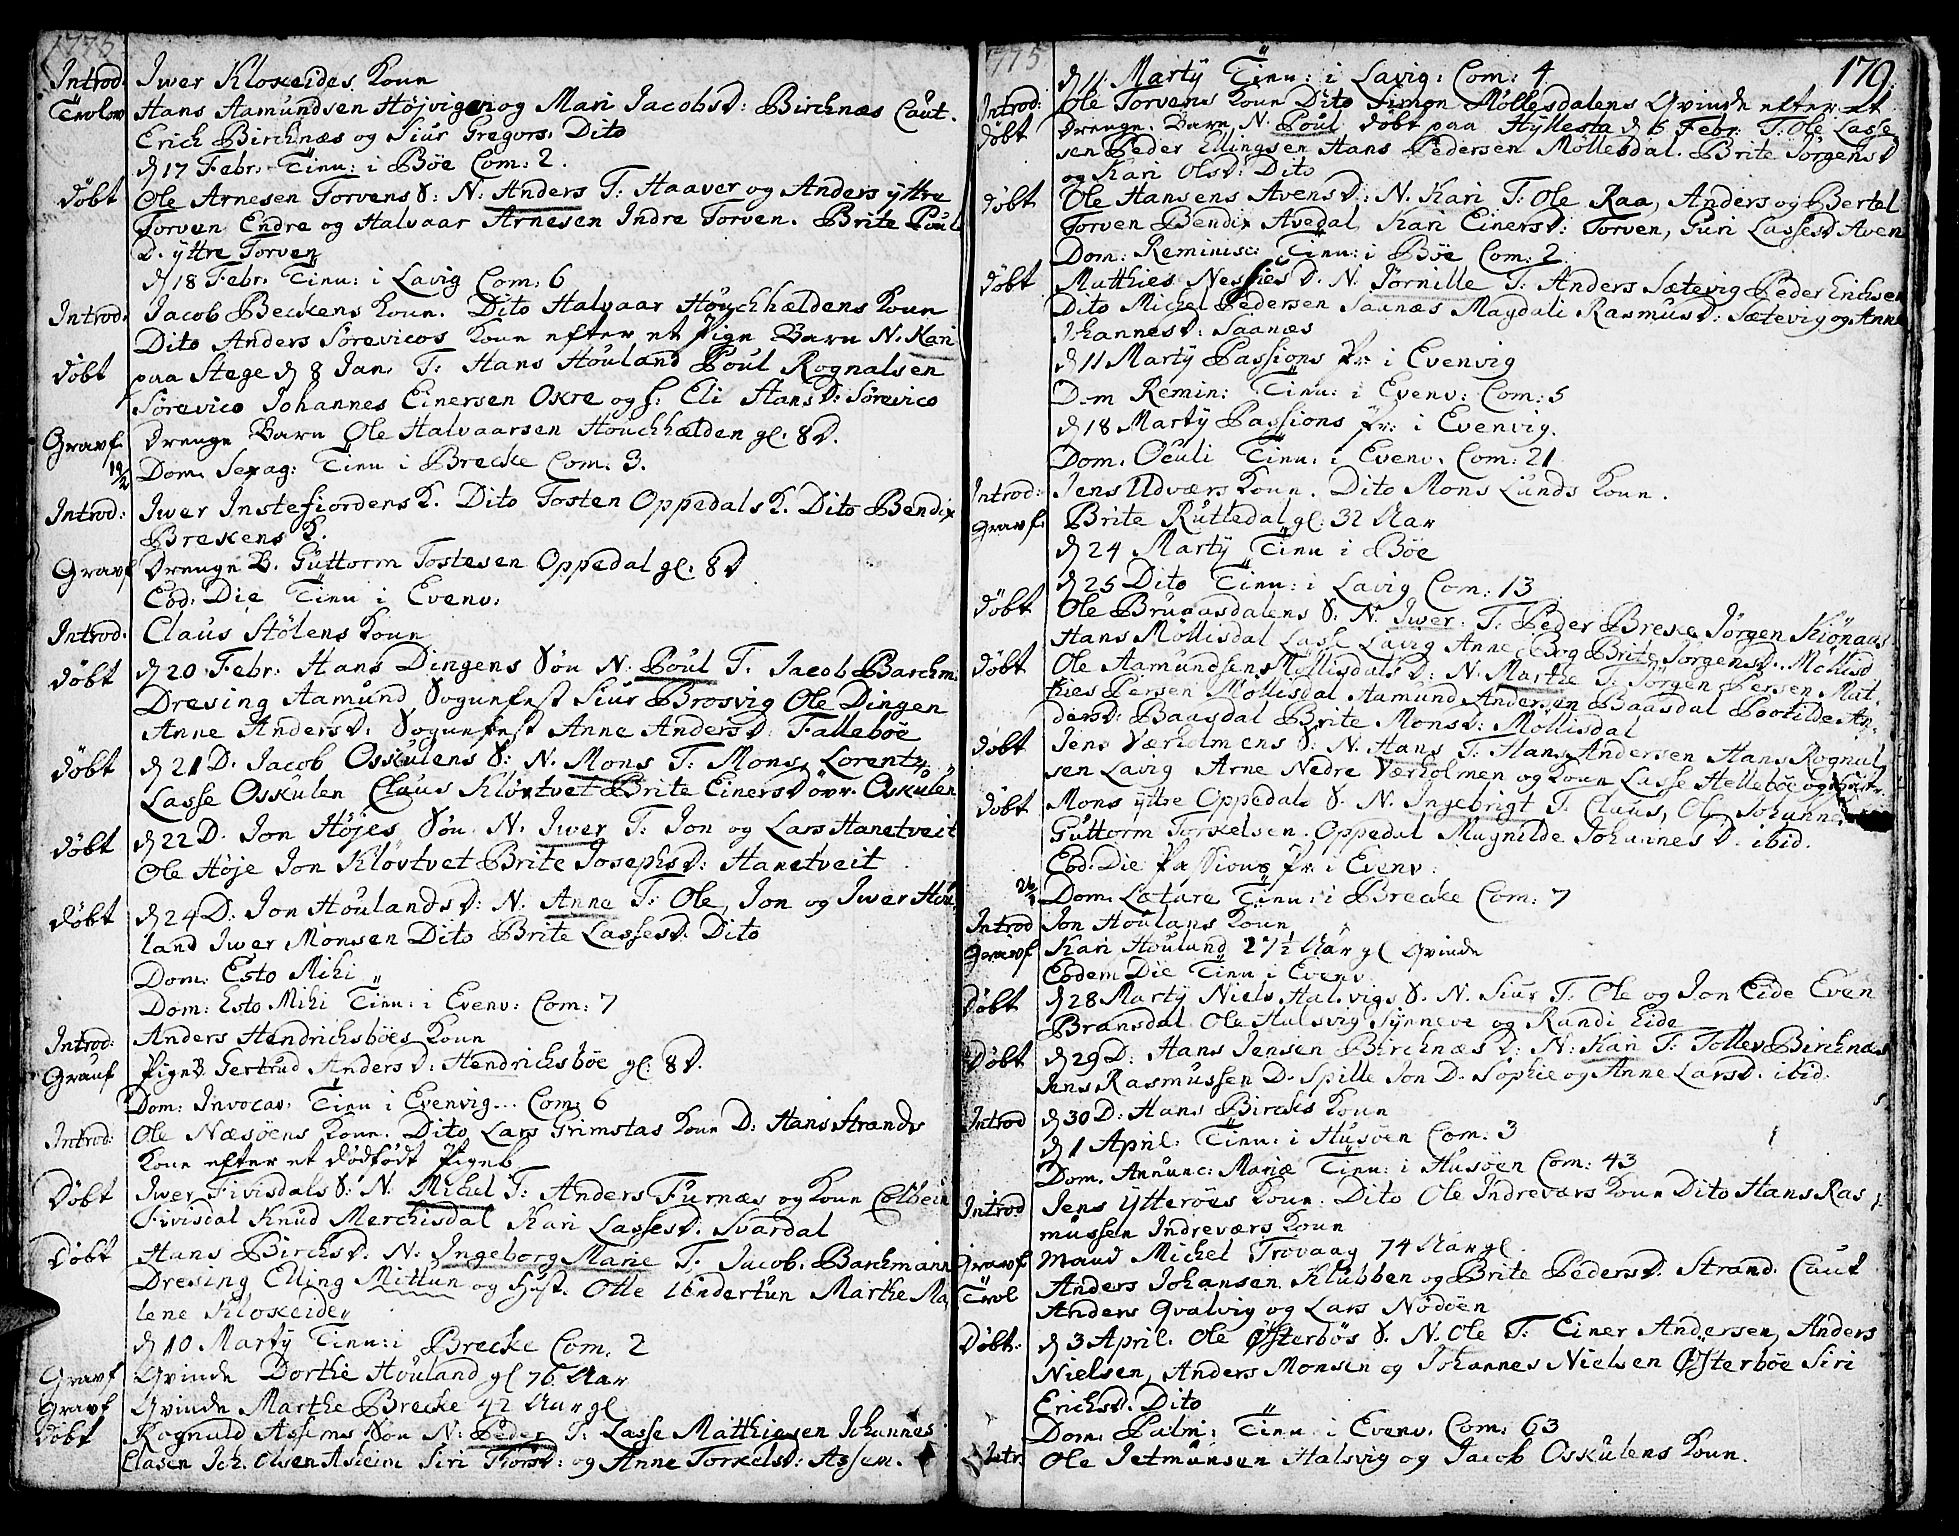 1775
Introd: Iwer Kloxeides Kone
Trolov Hans Aamundsen Højvigen og Mari Jacobsd: Birchnæs Caut.
Erich Birchnæs og Siur Gregors. Dito
d 17 Febr. Tinu: i Bøe Com: 2.
døbt Ole Arnesen Torvens S: N. Anders T: Haaver og Anders yttre
Torven Endre og Halvaar Arnesen Indre Torven. Brite Poul
D. yttre Torven
d 18 Febr. Tinu: i Lavig Com: 6
Introd: Jacob Beckens Kone. Dito Halvaar Houchhældens Kone
Dito Anders Sørevicos Kone efter et Pige Barn N. Kari
døbt paa Stege d 8 Jan. T: Hans Houland Poul Rognalsen
Sørevico Johannes Einersen Oxre og f: Eli Hansd: Sørevico
Gravf. Drenge Barn Ole Halvaarsen Houchhælden gl: 8D.
19/2 Dom. Sexag: Tinu i Brecke Com: 3.
Introd: Iwer Instefiordens K. Dito Tosten Oppedals K. Dito Bendix
Brekens K.
Gravf Drenge B. Guttorm Tostesen Oppedal gl: 8D
Eod: Die Tinu i Evenv:
Introd: Claus Stølens Kone
døbt d 20 Febr: Hans Dingens Søn N. Poul T. Jacob Barchm:
Dresing Aamund Sognefest Siur Brosvig Ole Dingen
Anne Andersd. Sognefest Anne Andersd: Fallebøe
døbt d 21 D. Jacob Oskulens S: N. Mons T: Mons, Lorentz
Lasse Oskulen Claus Kløvtvet Brite Einersd øvr. Oskulen
døbt d 22 D. Jon Højes Søn N. Iwer T: Jon og Lars Hanetveit
Ole Høje Jon Kløvtvet Brite Josephsd: Hanetveit
døbt d 24 D: Jon Houlands D: N. Anne T: Ole, Jon og Iwer Hou-
land Iwer Monsen Dito Brite Lassesd. Dito
Dom: Esto Mihi
Dom: Esto Mihi Tinu: i Evenv: Com: 7
Introd: Anders Hendrichsbøes Kone
Grauf Pigeb Gertrud Andersd: Hendrichsbøe gl: 8D.
Dom: Invocav. Tinu i Evenvig... Com: 6
Introd: Ole Næsøens Kone. Dito Lars Grimstas Kone D: Hans Strands
Kone efter et dødfødt Pigeb
Døbt Iwer Fivisdals S: N. Michel T: Anders Furnæs og Kone Colbein
Fivisdal Knud Merchisdal Kari Lassesd. Svardal
Døbt Hans Birchsd. N. Ingeborg Marie T: Jacob. Barchmann
Dresing Elling Mittun og Hust. Otte Undertun Marthe Ma
lene Kloxeiden
d 10 Marty Tinu: i Brecke Com. 2
Gravf Qvinde Dorthe Houland gl 76 Aar
Gravf Qvinde Marthe Brecke 42 Aar gl
døbt Rognald Assems Søn N: Peder T: Lasse Matthiesen Johannes
Clasen Joh. Olsen Asheim Siri Thorsd: og Anne Torkelsd: Assem.
1775
179.
d 11 Marty Tinu: i Lavig: Com: 4
Introd: Ole Torvens Kone Dito Simon Møllesdalens Qvinde efter et
døbt Drenge. Barn N. Poul døbt paa Hyllesta d 5 Febr. T: Ole Lasse
sen Peder Ellingsen Hans Pedersen Møllesdal. Brite Jørgensd
og Kari Olsd: Dito
døbt Ole Hansens Avensd: N. Kari T: Ole Raa, Anders og Bertel
Torven Bendix Avedal Kari Einersd: Torven, Guri Lassesd Aven
Dom: Reminisc: Tinu: i Bøe Com: 2.
døbt Matthies Nessies D. N. Jørnille T: Anders Sætevig Peder Erichsen
Dito Michel Pedersen Saanæs Magdali Rasmusd: Sætevig og Anne
Johannesd: Saanæs
d 11 Marty Passions Pr: i Evenvig
Dom Remin: Tinu: i Evenv: Com: 5
d 18 Marty Passions Pr: i Evenvig.
Dom. Oculi Tinu: i Evenv. Com: 21
Introd: Jens Udværs Kone. Dito Mons Lunds Kone.
Gravf: Brite Ruttedal gl: 32 Aar
d 24 Marty Tinu i Bøe
d 25 Dito Tinu: i Lavig Com: 13
døbt Ole Brugasdalens S: N. Iwer. T: Peder Breke Jørgen Kiønaas
Hans Møllisdal Lasse Lavig Anne Bog Brite Jørgensd. Møllisd
døbt Ole Aamundsens Møllisdals D: N. Marthe T: Jørgen Persen Mat-
thies Persen Møllisdal Aamund Andersen Baasdal Bootilde An-
dersd: Baasdal Brite Monsd: Møllisdal
døbt Jens Værholmens S: N. Hans T: Hans Andersen Hans Rognal
sen Lavig Arne Nedre Værholmen og Kone Lasse Hellebøe og Hustr.
døbt Mons yttre Oppedals S. N. Ingebrigt T. Claus, Ole Johannes
Guttorm Torkelsen. Oppedal Magnilde Johannesd. ibid.
Eod: Die Passions Pr: i Evenv:
26/3 Dom. Lætare Tinu: i Brecke Com: 7
Introd Jon Houlans Kone
Gravf Kari Houland 27½ Aar gl Qvinde
Eodem Die Tinu i Evenv
Døbt d 28 Marty Niels Halsvigs S. N. Siur T: Ole og Jon Eide Even
Bransdal. Ole Halsvig Synneve og Randi Eide
Døbt d 29 D: Hans Jensen Birchnæs D: N: Kari T: Tollev Birchnæs
Jens Rasmussen D. Spille Jon D. Sophie og Anne Larsd. ibid.
Introd d 30 D: Hans Bircks Kone
d 1 April: Tinu: i Husøen Com: 3
Dom. Annunc: Mariæ Tinu: i Husøen Com: 43
Introd Jens Ytterøes Kone. Dito Ole Indreværs Kone Dito Hans Ras
mussen Indreværs Kone
Gravf Mand Michel Trovaag 74 Aar gl
Trol Anders Johansen Klubben og Brite Pedersd. Strand. Caut
Anders Qvalvig og Lars Nødøen
Døbt: d 3 April. Ole Østerbøs S. N. Ole T: Einer Andersen, Anders
Nielsen, Anders Monsen og Johannes Nielsen Østerbøe Siri
Erichsd. Dito
Dom. Palm: Tinu i Evenv. Com: 63
Intr. Ole Jetmunsen Halsvig og Jacob Oskulens Kone.